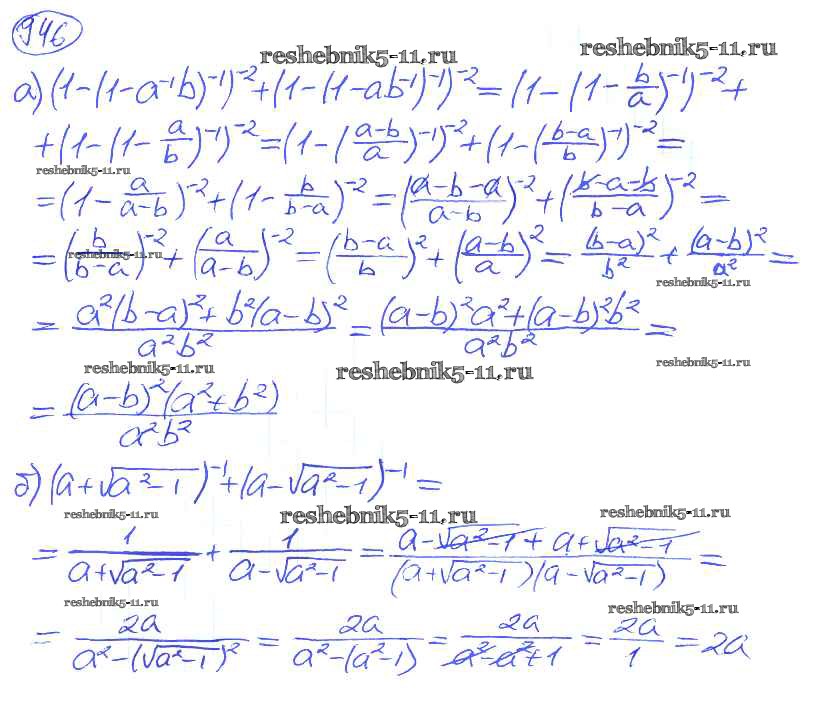 946
reshebnik5-11.ru reshebnik5-11.ru
а) (1-(1-a⁻¹b)⁻¹)⁻²+(1-(1-ab⁻¹)⁻¹)⁻²=(1-(1-b/a)⁻¹)⁻²+
+(1-(1-a/b)⁻¹)⁻²=(1-((a-b)/a)⁻¹)⁻²+(1-((b-a)/b)⁻¹)⁻²=
reshebnik5-11.ru
=(1-a/(a-b))⁻²+(1-b/(b-a))⁻²=((a-b-a)/(a-b))⁻²+((b-a-b)/(b-a))⁻²=
=(b/(b-a))⁻²+(a/(a-b))⁻²=((b-a)/b)²+((a-b)/a)²=(b-a)²/b²+(a-b)²/a²=
reshebnik5-11.ru reshebnik5-11.ru
=(a²(b-a)²+b²(a-b)²)/(a²b²)=((a-b)²a²+(a-b)²b²)/(a²b²)=
reshebnik5-11.ru reshebnik5-11.ru reshebnik5-11.ru
=(a-b)²(a²+b²)/(a²b²)
б) (a+√(a²-1))⁻¹+(a-√(a²-1))⁻¹=
reshebnik5-11.ru reshebnik5-11.ru reshebnik5-11.ru
=1/(a+√(a²-1))+1/(a-√(a²-1))=(a-√(a²-1)+a+√(a²-1))/((a+√(a²-1))(a-√(a²-1)))=
reshebnik5-11.ru reshebnik5-11.ru
=2a/(a²-(√(a²-1))²)=2a/(a²-(a²-1))=2a/(a²-a²+1)=2a/1=2a